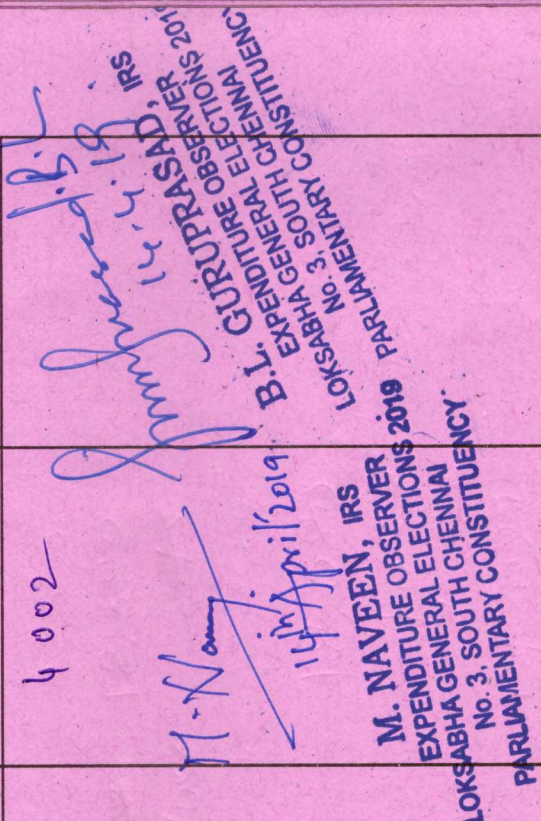 4002
M. Naveen
14th April 2019
M. NAVEEN, IRS
EXPENDITURE OBSERVER
LOKSABHA GENERAL ELECTIONS 2019
No. 3, SOUTH CHENNAI
PARLIAMENTARY CONSTITUENCY
Guruprasad. B.L
14.4.19.
B.L. GURUPRASAD, IRS
EXPENDITURE OBSERVER
LOKSABHA GENERAL ELECTIONS 2019
No. 3, SOUTH CHENNAI
PARLIAMENTARY CONSTITUENCY